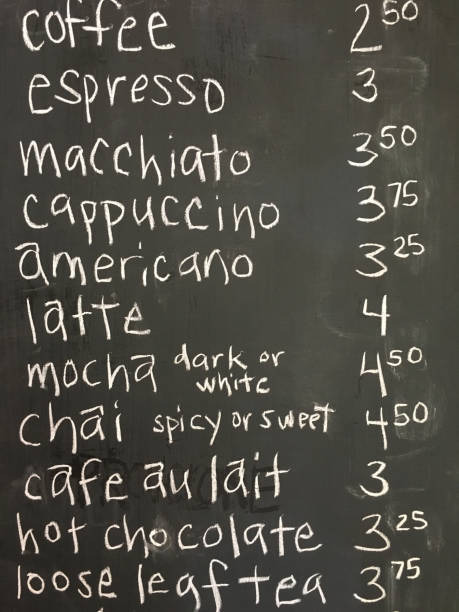 coffee 2 50
espresso 3
macchiato 3 50
cappuccino 3 75
americano 3 25
latte 4
mocha dark or white 4 50
chai spicy or sweet 4 50
cafe au lait 3
hot chocolate 3 25
loose leaf tea 3 75